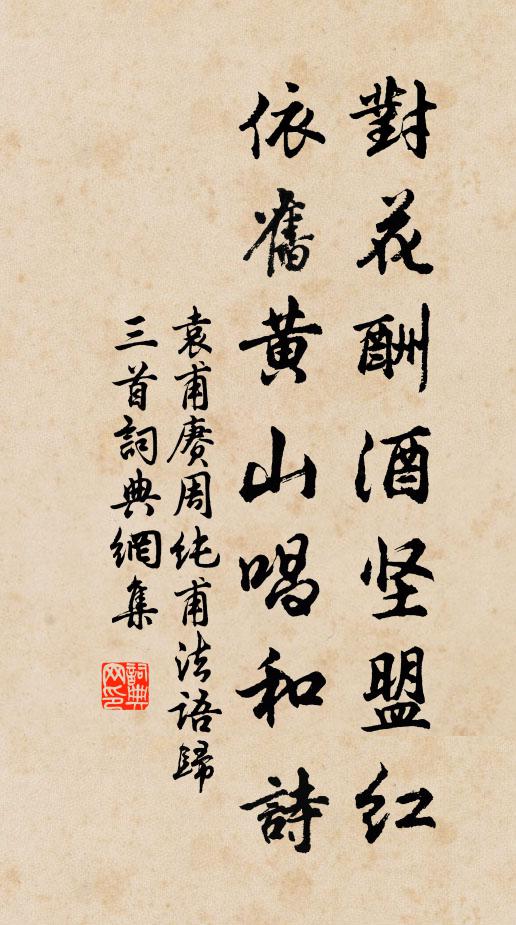 對花酬酒坚盟红
依舊黄山唱和詩
袁甫赓周純甫法語歸
三首詞典網集
詞典
网印